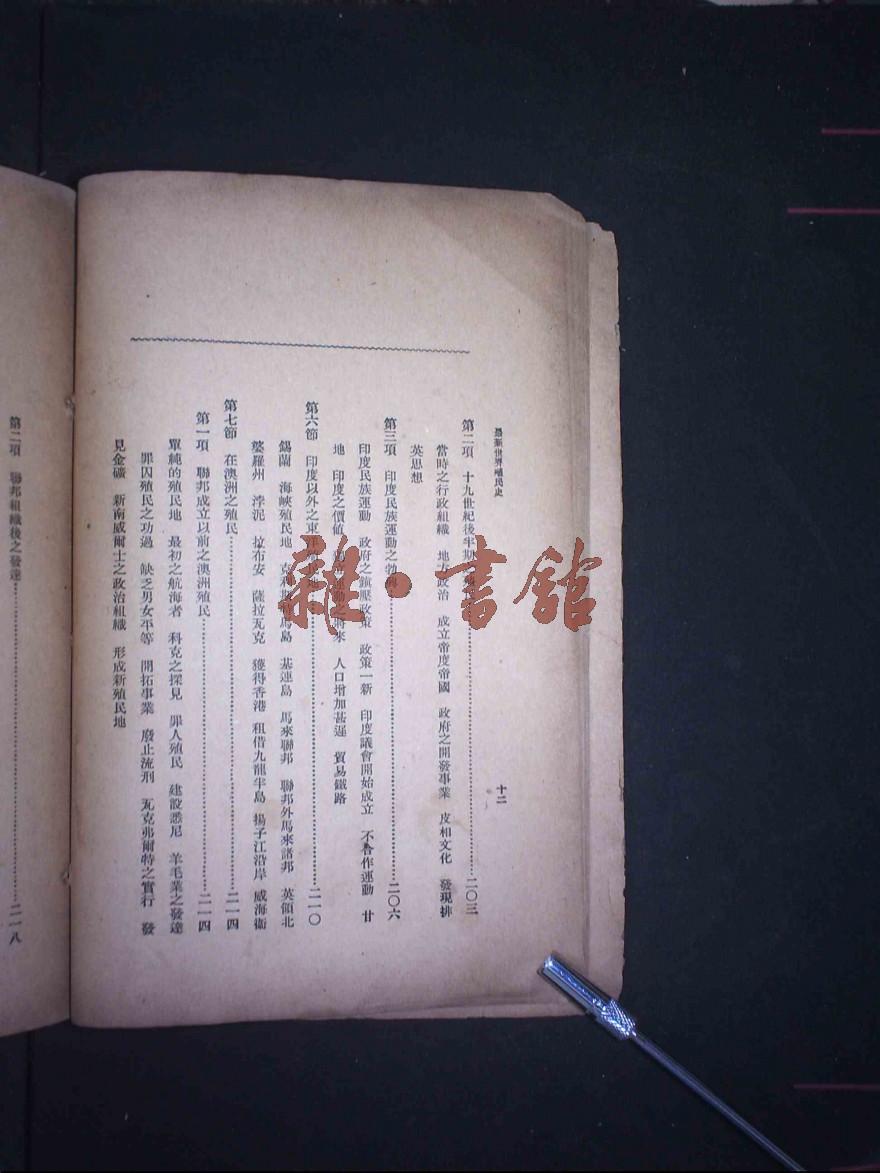 最新世界殖民史
十二
第二項 十九世紀後半期 二〇三
當時之行政組織 地方政治 成立帝度帝國 政府之開發事業 皮相文化 發現排
英思想
第三項 印度民族運動之勃 二〇六
印度民族運動 政府之鎮壓政策 政策一新 印度議會開始成立 不合作運動 甘
地 印度之價值 運動之將來 人口增加甚遲 貿易鐵路
第六節 印度以外之東洋 二一〇
錫蘭 海峽殖民地 馬島 基連島 馬來聯邦 聯邦外馬來諸邦 英領北
婆羅州 浡泥 拉布安 薩拉瓦克 獲得香港 租借九龍半島 揚子江沿岸 威海衞
第七節 在澳洲之殖民 二一四
第一項 聯邦成立以前之澳洲殖民 二一四
單純的殖民地 最初之航海者 科克之探見 罪人殖民 建設悉尼 羊毛業之發達
罪囚殖民之功過 缺乏男女平等 開拓事業 廢止流刑 瓦克弗爾特之實行 發
見金礦 新南威爾士之政治組織 形成新殖民地
第二項 聯邦組織後之發達 二一八
雜·書館